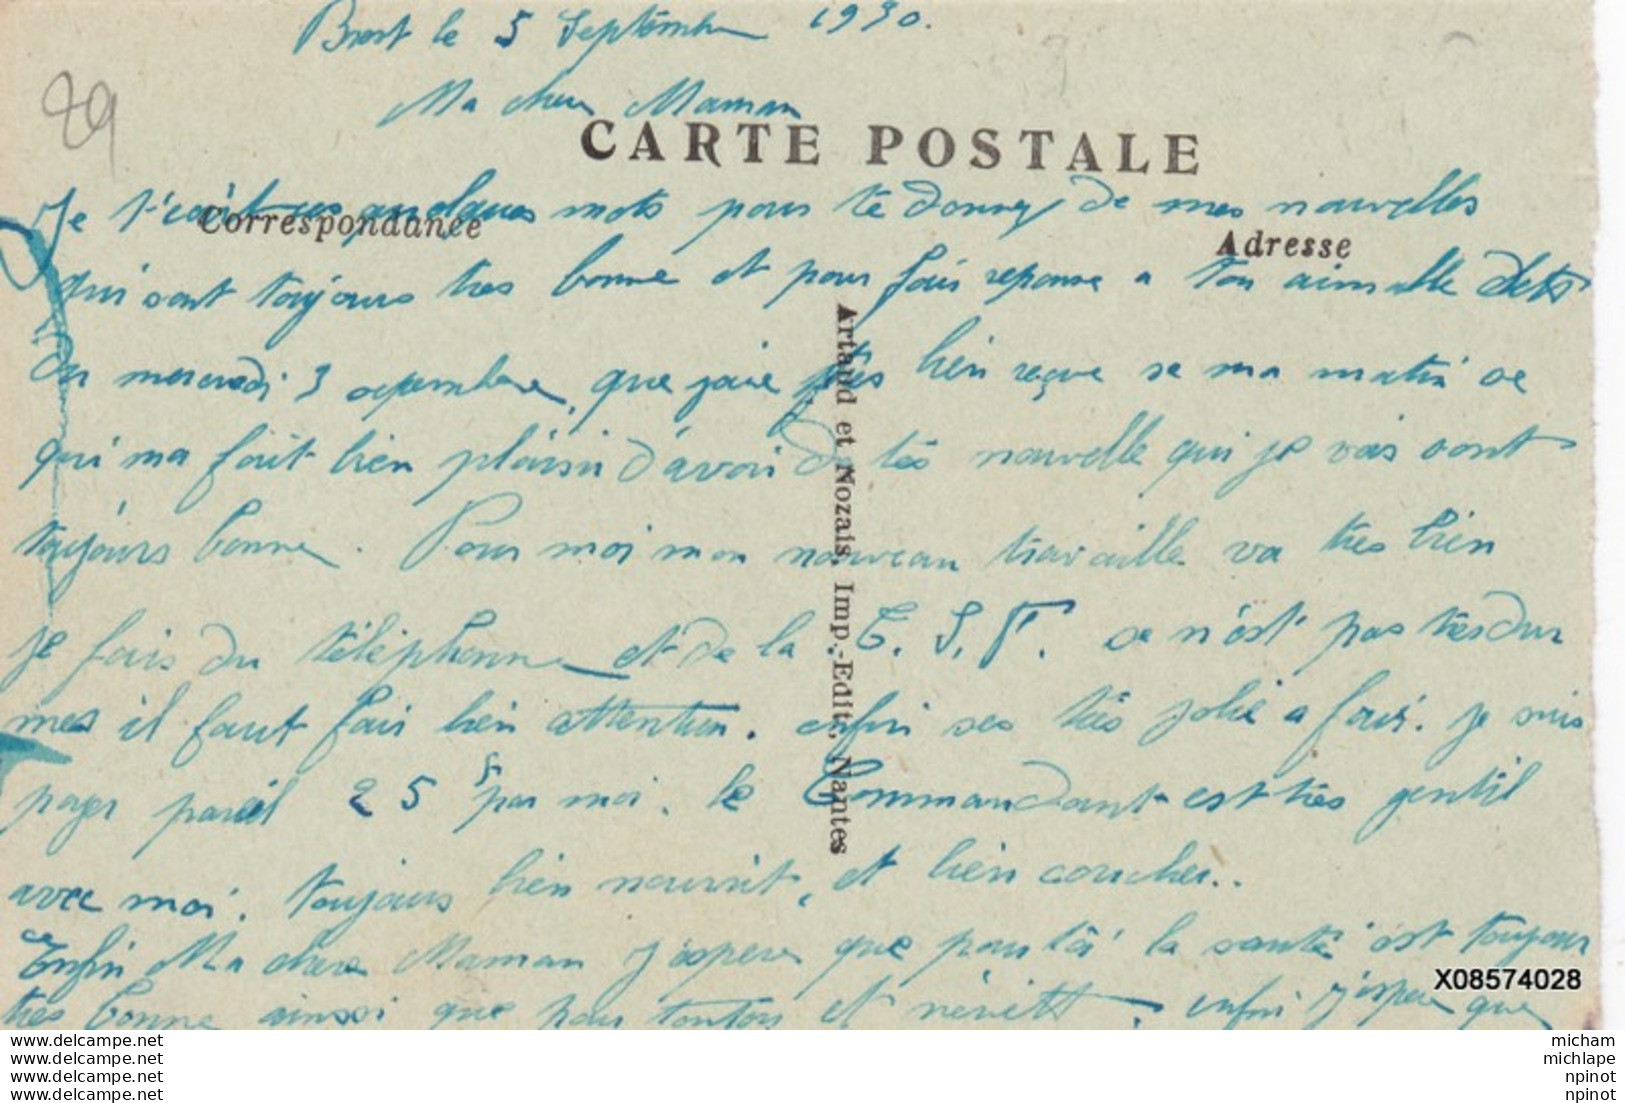 Brest le 5 Septembre 1930.
29
Ma chere Maman
CARTE POSTALE
Je t'écrit ses quelques mots pour te donner de mes nouvelles
Correspondance
Adresse
qui sont toujours tres bonne et pour fair reponse a ton aimable
du mercredi 3 septembre, que jaie très bien reçue se ma matin se
qui ma fait bien plaisir d'avoir de tes nouvelle qui je vois sont
toujours bonne. Pour moi mon nouveau travaille va très bien
je fais du téléphonne et de la T. S. F. se n'est pas très dur
mes il faut fair bien attention. enfin ses très jolie a fair. je suis
payer pareil 25 f par moi. le Commandant est très gentil
avec moi. toujours bien nourrit, et bien coucher..
Enfin Ma chere Maman j'espere que pour toi la santé est toujour
très bonne ainsi que pour tonton et enfin j'espere que
Artaud et Nozais, Imp.-Edit., Nantes
X08574028
www.delcampe.net
www.delcampe.net
www.delcampe.net
www.delcampe.net
micham
michlape
npinot
npinot